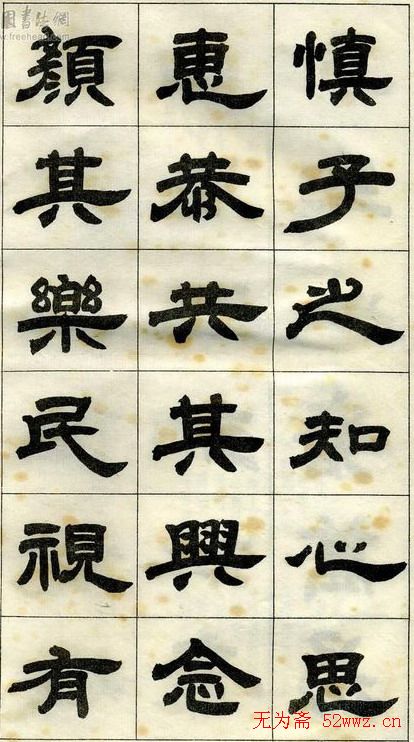 慎子之知心思
惠恭共其興念
顏其樂民視有
书法网
www.freehead.com
无为斋 52wwz.cn